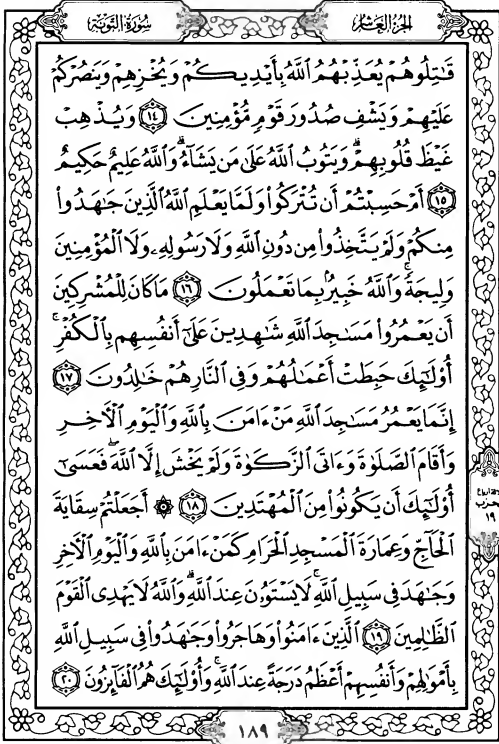 سُورَةُ التَّوْبَةِ
الجُزْءُ العَاشِرُ
قَٰتِلُوهُمْ يُعَذِّبْهُمُ ٱللَّهُ بِأَيْدِيكُمْ وَيُخْزِهِمْ وَيَنصُرْكُمْ
عَلَيْهِمْ وَيَشْفِ صُدُورَ قَوْمٍ مُّؤْمِنِينَ ١٤ وَيُذْهِبْ
غَيْظَ قُلُوبِهِمْ ۗ وَيَتُوبُ ٱللَّهُ عَلَىٰ مَن يَشَآءُ ۗ وَٱللَّهُ عَلِيمٌ حَكِيمٌ
١٥ أَمْ حَسِبْتُمْ أَن تُتْرَكُوا۟ وَلَمَّا يَعْلَمِ ٱللَّهُ ٱلَّذِينَ جَٰهَدُوا۟
مِنكُمْ وَلَمْ يَتَّخِذُوا۟ مِن دُونِ ٱللَّهِ وَلَا رَسُولِهِۦ وَلَا ٱلْمُؤْمِنِينَ
وَلِيجَةً ۚ وَٱللَّهُ خَبِيرٌۢ بِمَا تَعْمَلُونَ ١٦ مَا كَانَ لِلْمُشْرِكِينَ
أَن يَعْمُرُوا۟ مَسَٰجِدَ ٱللَّهِ شَٰهِدِينَ عَلَىٰٓ أَنفُسِهِم بِٱلْكُفْرِ ۚ
أُو۟لَٰٓئِكَ حَبِطَتْ أَعْمَٰلُهُمْ وَفِى ٱلنَّارِ هُمْ خَٰلِدُونَ ١٧
إِنَّمَا يَعْمُرُ مَسَٰجِدَ ٱللَّهِ مَنْ ءَامَنَ بِٱللَّهِ وَٱلْيَوْمِ ٱلْءَاخِرِ
وَأَقَامَ ٱلصَّلَوٰةَ وَءَاتَى ٱلزَّكَوٰةَ وَلَمْ يَخْشَ إِلَّا ٱللَّهَ ۖ فَعَسَىٰٓ
أُو۟لَٰٓئِكَ أَن يَكُونُوا۟ مِنَ ٱلْمُهْتَدِينَ ١٨ ۞ أَجَعَلْتُمْ سِقَايَةَ
ٱلْحَآجِّ وَعِمَارَةَ ٱلْمَسْجِدِ ٱلْحَرَامِ كَمَنْ ءَامَنَ بِٱللَّهِ وَٱلْيَوْمِ ٱلْءَاخِرِ
وَجَٰهَدَ فِى سَبِيلِ ٱللَّهِ ۚ لَا يَسْتَوُۥنَ عِندَ ٱللَّهِ ۗ وَٱللَّهُ لَا يَهْدِى ٱلْقَوْمَ
ٱلظَّٰلِمِينَ ١٩ ٱلَّذِينَ ءَامَنُوا۟ وَهَاجَرُوا۟ وَجَٰهَدُوا۟ فِى سَبِيلِ ٱللَّهِ
بِأَمْوَٰلِهِمْ وَأَنفُسِهِمْ أَعْظَمُ دَرَجَةً عِندَ ٱللَّهِ ۚ وَأُو۟لَٰٓئِكَ هُمُ ٱلْفَآئِزُونَ ٢٠
الحزب
١٩
١٨٩